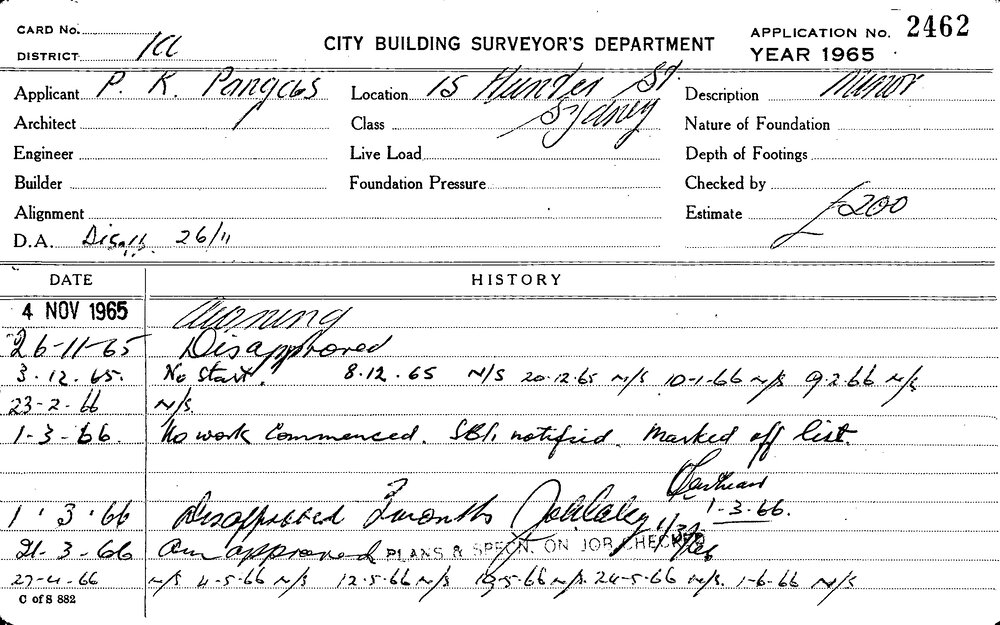 CARD No.
DISTRICT
CITY BUILDING SURVEYOR'S DEPARTMENT
APPLICATION No. 2462
YEAR 1965
Applicant P. K. Pangas
Location 15 Hunter St
Sydney
Description Minor
Architect
Class
Nature of Foundation
Engineer
Live Load
Depth of Footings
Builder
Foundation Pressure
Checked by
Alignment
Estimate £200
D.A. Disapp. 26/11
DATE HISTORY
4 NOV 1965 Awning
26-11-65 Disapproved
3.12.65. No start. 8.12.65 N/S 20.12.65 N/S 10-1-66 N/S 9.2.66 N/S
23-2-66 N/S.
1-3-66. No work Commenced. SBI. notified. Marked off list.
1-3-66.
1.3.66 Disapproved 2 months
21-3-66 approved PLANS & SPECN. ON JOB CHECKED
27-4-66 N/S 4-5-66 N/S 12.5.66 N/S 19-5-66 N/S. 24-5-66 N/S. 1-6-66 N/S
C of S 882